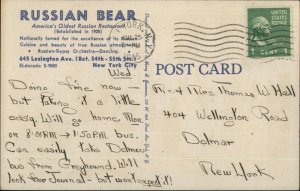 RUSSIAN BEAR
America's Oldest Russian Restaurant
(Established in 1908)
Nationally famed for the excellence of its
Cuisine and beauty of true Russian atmosphere
Russian-Gypsy Orchestra—Dancing.
645 Lexington Ave. (Bet. 54th - 55th Sts.)
ELdorado 5-9080 New York City
POST CARD
1 CENT 1
Wed.
Doing fine now -
but taking it a little
easy. Will go home Mon
on 8:00AM → 1:50PM bus.
Can easily take Delmar
bus from Greyhound. Will
look for Journal - but won't
Mr. & Mrs Thomas W. Hall
404 Wellington Road
Delmar
New York